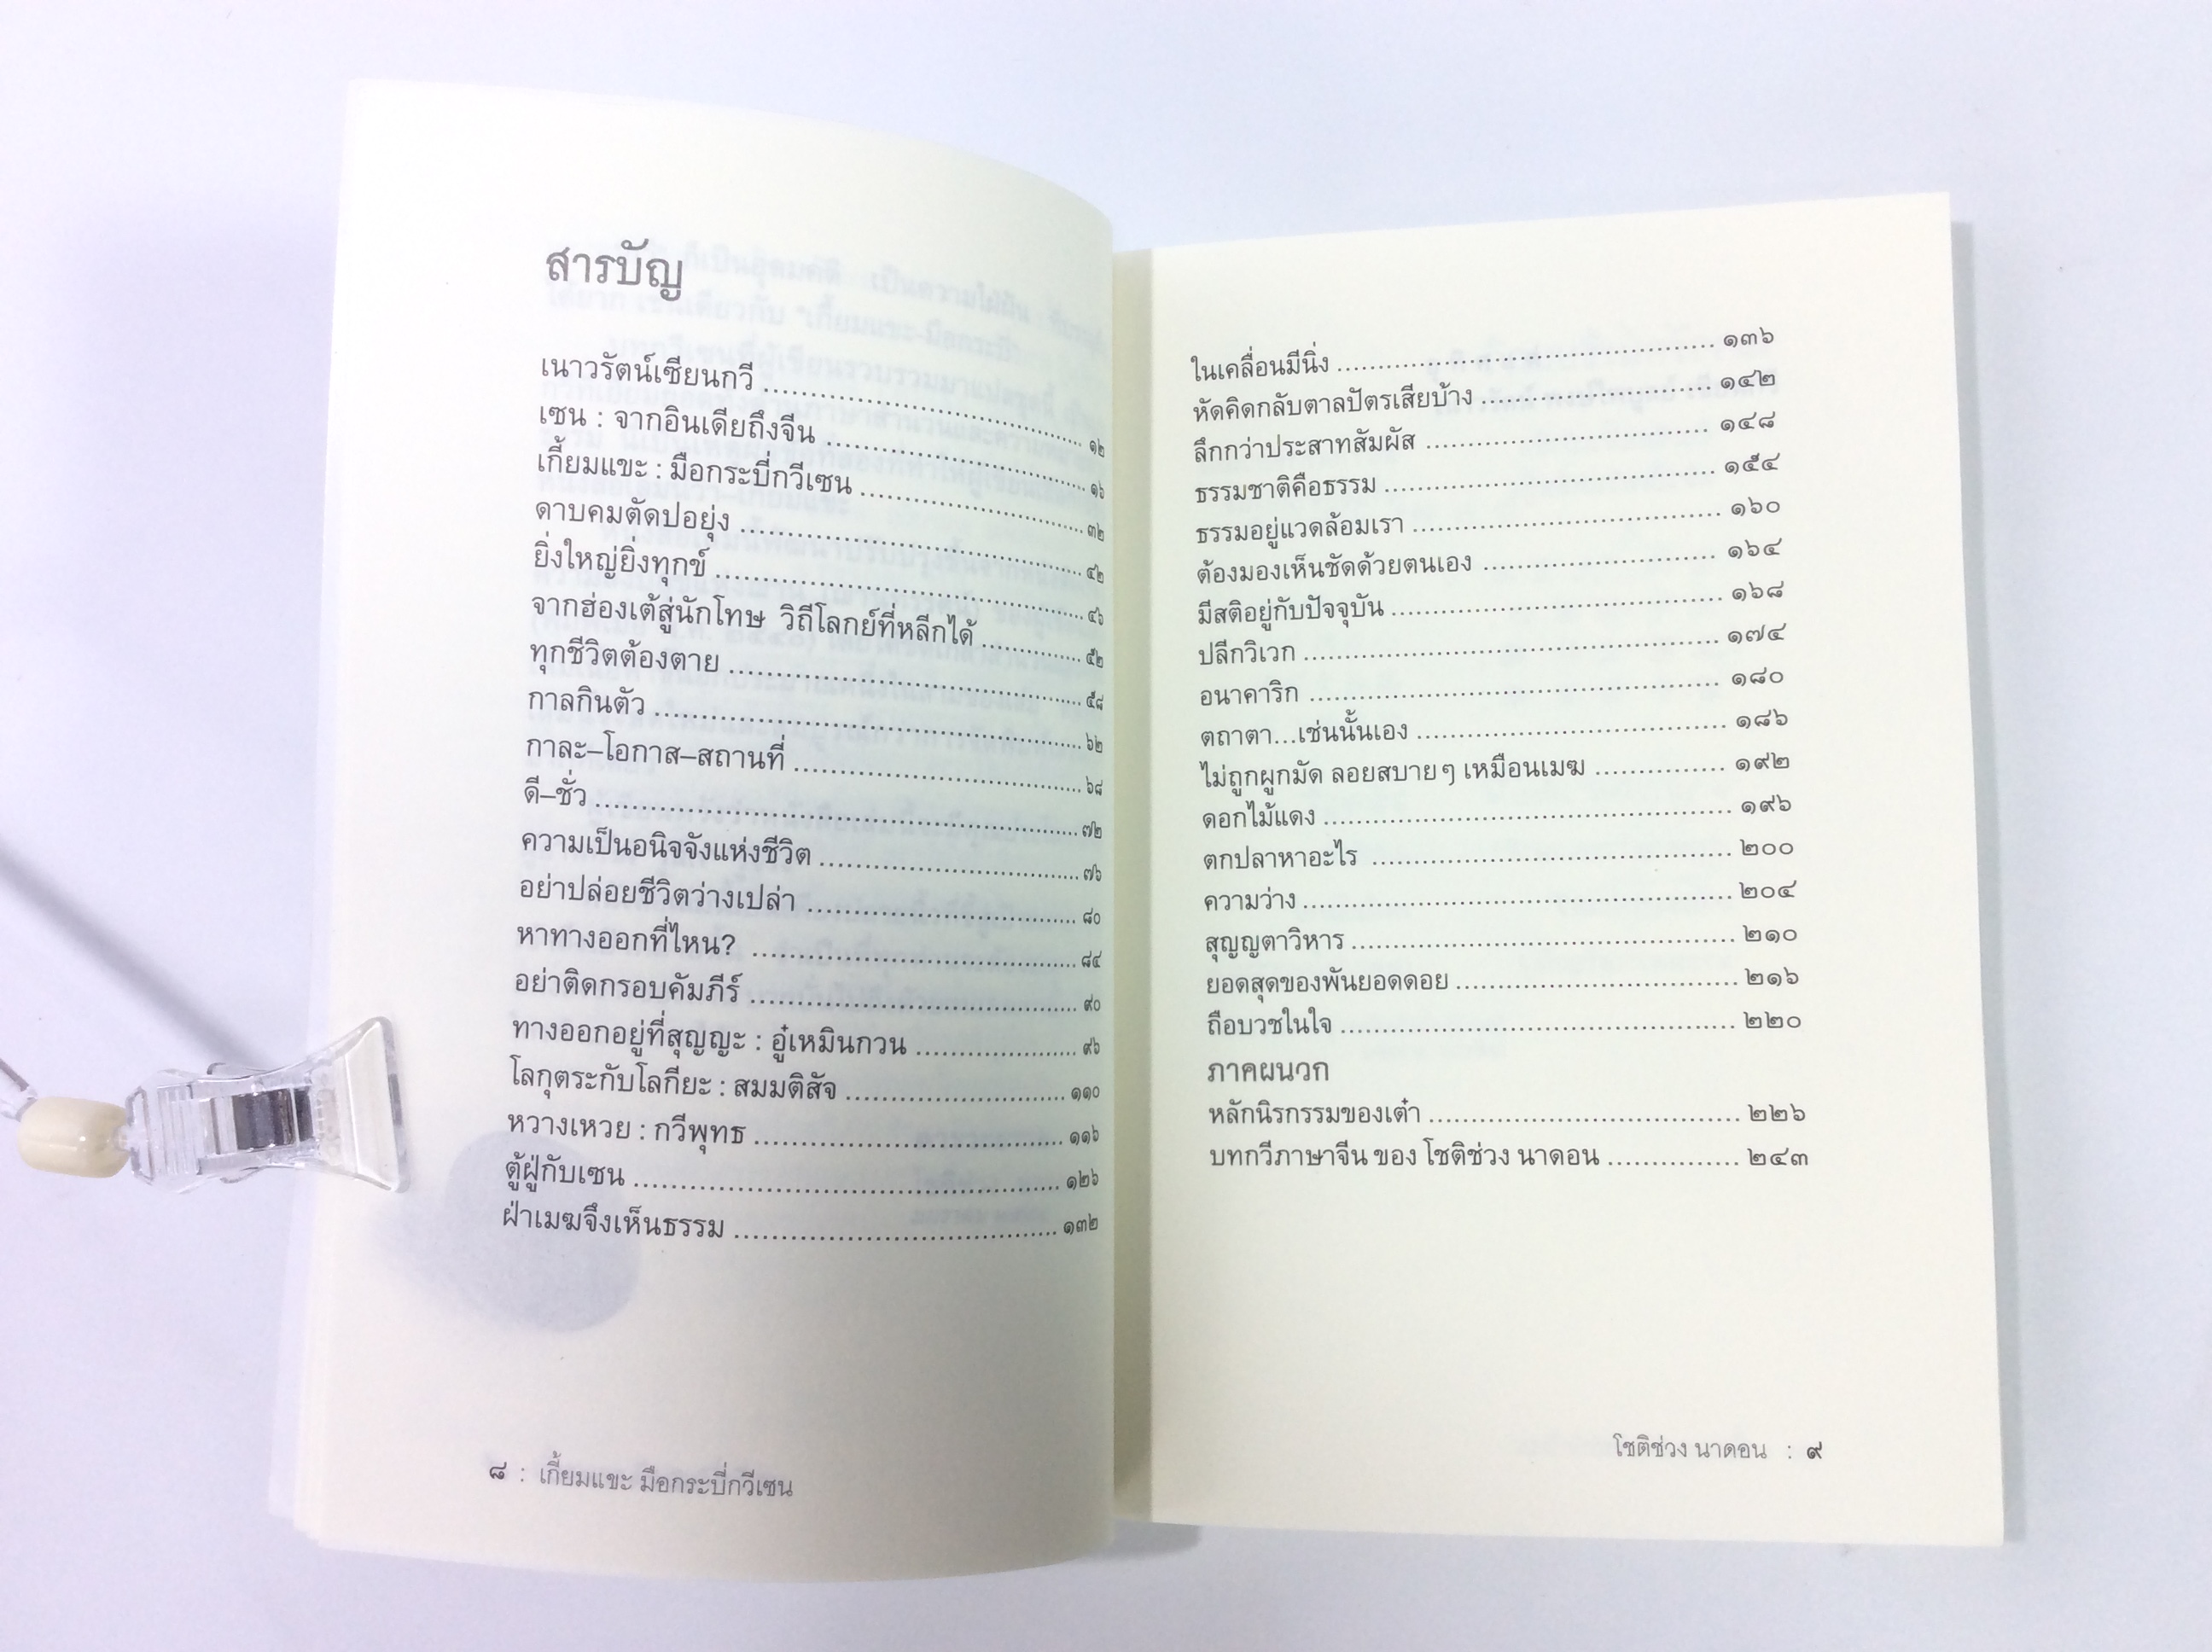 สารบัญ
เนาวรัตน์เซียนกวี ........................................ ๑๒
เซน : จากอินเดียถึงจีน ........................................ ๑๖
เกี้ยมแขะ : มือกระบี่กวีเซน ........................................ ๓๒
ดาบคมตัดปอยุ่ง ........................................ ๔๒
ยิ่งใหญ่ยิ่งทุกข์ ........................................ ๔๖
จากฮ่องเต้สู่นักโทษ วิถีโลกย์ที่หลีกได้ ........................................ ๕๒
ทุกชีวิตต้องตาย ........................................ ๕๘
กาลกินตัว ........................................ ๖๒
กาละ–โอกาส–สถานที่ ........................................ ๖๘
ดี–ชั่ว ........................................ ๗๒
ความเป็นอนิจจังแห่งชีวิต ........................................ ๗๖
อย่าปล่อยชีวิตว่างเปล่า ........................................ ๘๐
หาทางออกที่ไหน? ........................................ ๘๔
อย่าติดกรอบคัมภีร์ ........................................ ๙๐
ทางออกอยู่ที่สุญญะ : อู๋เหมินกวน ........................................ ๙๖
โลกุตระกับโลกียะ : สมมติสัจ ........................................ ๑๑๐
หวางเหวย : กวีพุทธ ........................................ ๑๑๖
ตู้ฝู่กับเซน ........................................ ๑๒๖
ฝ่าเมฆจึงเห็นธรรม ........................................ ๑๓๒
๘ : เกี้ยมแขะ มือกระบี่กวีเซน
ในเคลื่อนมีนิ่ง ........................................ ๑๓๖
หัดคิดกลับตาลปัตรเสียบ้าง ........................................ ๑๔๒
ลึกกว่าประสาทสัมผัส ........................................ ๑๔๘
ธรรมชาติคือธรรม ........................................ ๑๕๔
ธรรมอยู่แวดล้อมเรา ........................................ ๑๖๐
ต้องมองเห็นชัดด้วยตนเอง ........................................ ๑๖๔
มีสติอยู่กับปัจจุบัน ........................................ ๑๖๘
ปลีกวิเวก ........................................ ๑๗๔
อนาคาริก ........................................ ๑๘๐
ตถาตา...เช่นนั้นเอง ........................................ ๑๘๖
ไม่ถูกผูกมัด ลอยสบายๆ เหมือนเมฆ ........................................ ๑๙๒
ดอกไม้แดง ........................................ ๑๙๖
ตกปลาหาอะไร ........................................ ๒๐๐
ความว่าง ........................................ ๒๐๔
สุญญตาวิหาร ........................................ ๒๑๐
ยอดสุดของพันยอดดอย ........................................ ๒๑๖
ถือบวชในใจ ........................................ ๒๒๐
ภาคผนวก
หลักนิรกรรมของเต๋า ........................................ ๒๒๖
บทกวีภาษาจีน ของ โชติช่วง นาดอน ................ ๒๔๓
โชติช่วง นาดอน : ๙